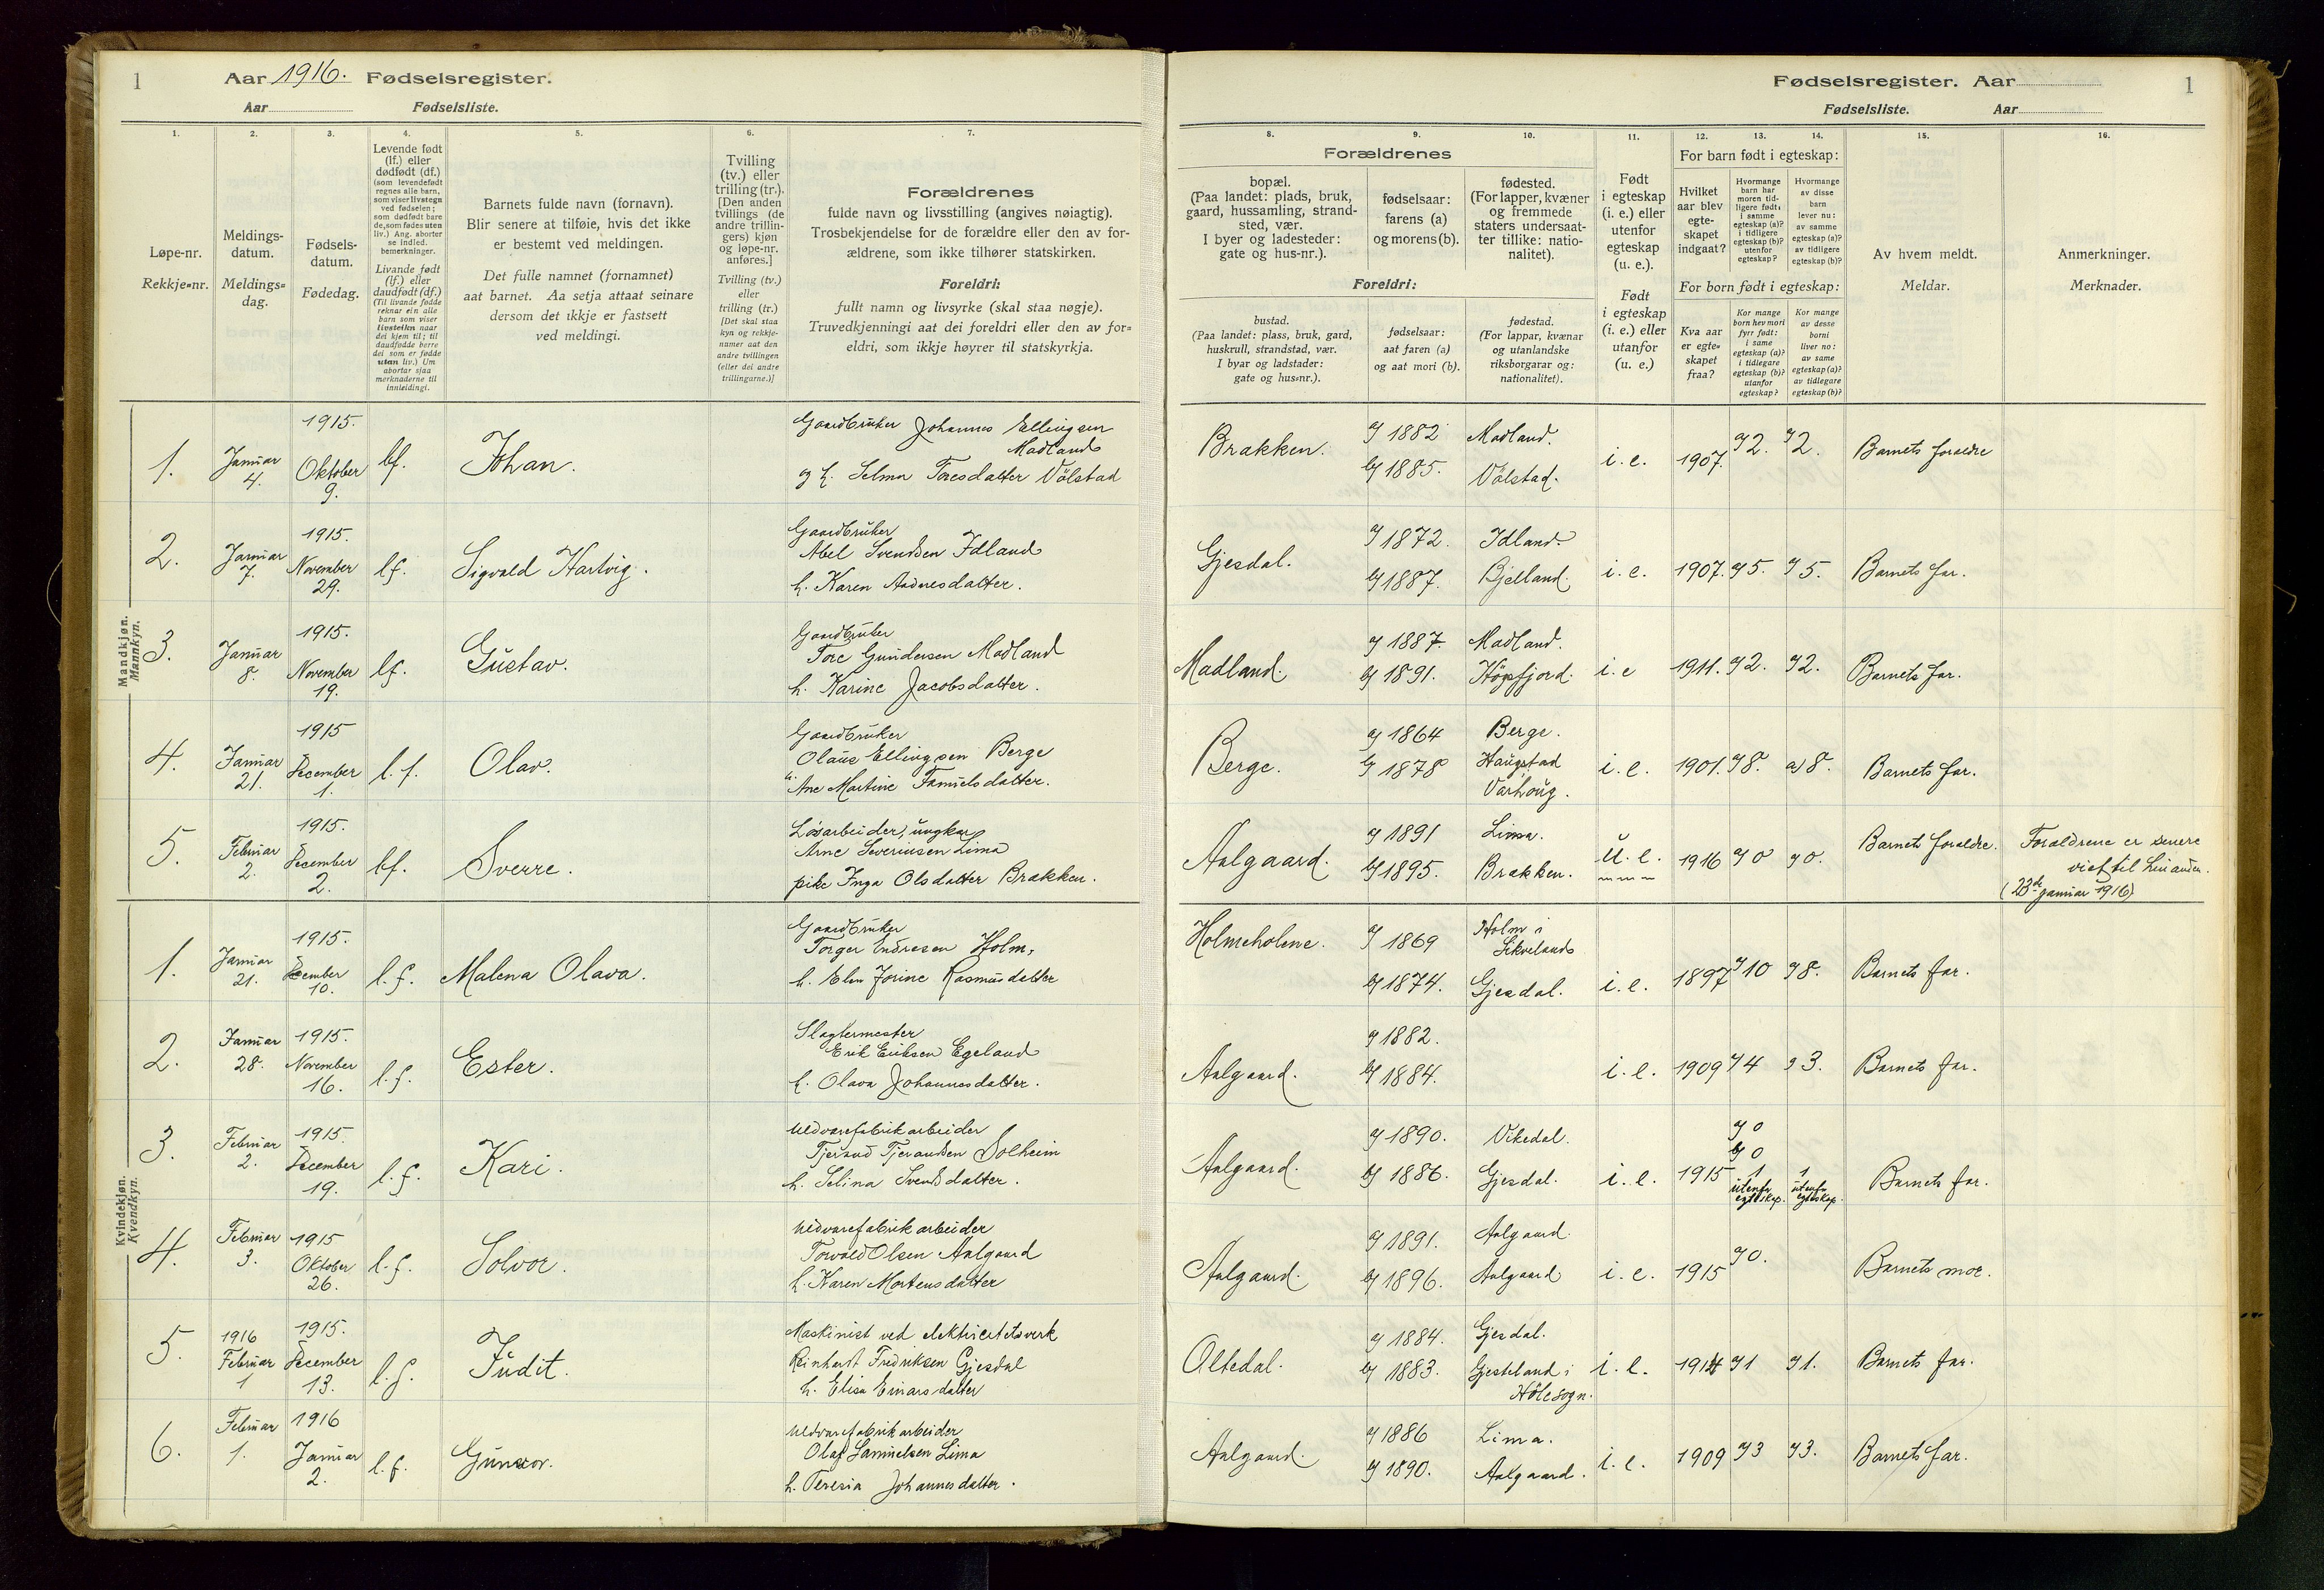 1
Aar 1916. Fødselsregister.
Aar Fødselsliste.
Fødselsregister. Aar
1
Fødselsliste. Aar
1.
2.
3.
4.
5.
6.
7.
8.
9.
10.
11.
12.
13.
14.
15.
16.
Løpe-nr.
Rekkje-nr.
Meldings-
datum.
Meldings-
dag.
Fødsels-
datum.
Fødedag.
Levende født
(lf.) eller
dødfødt (df.)
(som levendefødt
regnes alle barn,
som viser livstegn
ved fødselen;
som dødfødt bare
de, som fødes uten
liv.) Ang. aborter
se indled.
bemerkninger.
Livande født
(lf.) eller
daudfødt (df.)
(Til livande fødde
reknar ein alle
barn som viser
livsteikn naar
dei kjem til; til
daudfødde berre
dei som er fødde
utan liv.) Um
abortar sjaa
merknaderne til
innleidingi.
Barnets fulde navn (fornavn).
Blir senere at tilføie, hvis det ikke
er bestemt ved meldingen.
Det fulle namnet (fornamnet)
aat barnet. Aa setja attaat seinare
dersom det ikkje er fastsett
ved meldingi.
Tvilling
(tv.) eller
trilling (tr.).
[Den anden
tvillings (de
andre trillin-
gers) kjøn
og løpe-nr.
anføres.]
Tvilling (tv.)
eller
trilling (tr.)
[Det skal staa
kyn og rekkje-
numer aat den
andre tvillingen
(eller dei andre
trillingarne.)]
Forældrenes
fulde navn og livsstilling (angives nøiagtig).
Trosbekjendelse for de forældre eller den av for-
ældrene, som ikke tilhører statskirken.
Foreldri:
fullt namn og livsyrke (skal staa nøgje).
Truvedkjenningi aat dei foreldri eller den av for-
eldri, som ikkje høyrer til statskyrkja.
Forældrenes
bopæl.
(Paa landet: plads, bruk,
gaard, hussamling, strand-
sted, vær.
I byer og ladesteder:
gate og hus-nr.).
fødselsaar:
farens (a)
og morens (b).
fødested.
(For lapper, kvæner
og fremmede
staters undersaat-
ter tillike: natio-
nalitet).
Foreldri:
bustad.
(Paa landet: plass, bruk, gard,
huskrull, strandstad, vær.
I byar og ladstader:
gate og hus-nr.).
fødselsaar:
aat faren (a)
og aat mori (b).
fødestad.
(For lappar, kvænar
og utanlandske
riksborgarar og:
nationalitet).
Født
i egteskap
(i. e.) eller
utenfor
egteskap
(u. e.).
Født
i egteskap
(i. e.) eller
utanfor
(u. e.)
For barn født i egteskap:
Hvilket
aar blev
egte-
skapet
indgaat?
Hvormange
barn har
moren tid-
ligere født:
i samme
egteskap (a)?
i tidligere
egteskap (b)?
utenfor
egteskap?
Hvormange
av disse
barn
lever nu:
av samme
egteskap (a)?
av tidligere
egteskap (b)?
For born født i egteskap:
Kva aar
er egte-
skapet
fraa?
Kor mange
born hev mori
fyrr født:
i same
egteskap (a)?
i tidlegare
egteskap (b)?
utanfor
egteskap?
Kor mange
av desse
borni
liver no:
av same
egteskap (a)?
av tidlegare
egteskap (b)?
Av hvem meldt.
Meldar.
Anmerkninger.
Merknader.
Mandkjøn.
Mannkyn.
1. Januar 4. 1915. Oktober 9. lf. Johan. Gaardbruker Johannes Ellingsen Madland og h. Selma Toresdatter Völstad
Brækken. a) 1882 b) 1885. Madland. Völstad. i. e. 1907. a) 2. a) 2. Barnets forældre
2. Januar 7. 1915. November 29. lf. Sigvald Hartvig. Gaardbruker Abel Svendsen Idland h. Karen Aadnesdatter.
Gjesdal. a) 1872. b) 1887. Idland. Bjelland. i. e. 1907. a) 5. a) 5. Barnets far.
3. Januar 8. 1915. November 19. lf. Gustav. Gaardbruker Tore Gundersen Madland h. Karine Jacobsdatter.
Madland. a) 1887. b) 1891. Madland. Högsfjord. i. e 1911. a) 2. a) 2. Barnets far.
4. Januar 21. 1915 December 1. l. f. Olav. Gaardbruker Olaus Ellingsen Berge h. Ane Martine Samuelsdatter.
Berge. a) 1864 b) 1878 Berge. Haugstad Varhoug. i. e. 1901. a) 8. a) 8. Barnets far.
5. Februar 2. 1915. December 2. lf. Sverre. Løsarbeider, ungkar Arne Severinsen Lima pike Inga Olsdatter Brækken.
Aalgaard. a) 1891 b) 1895. Lima. Brækken. u. e. 1916 a) 0 a) 0. Barnets forældre. Forældrene er senere viet til hinanden. (23de januar 1916)
Kvindekjøn.
Kvendkyn.
1. Januar 21. 1915. December 10. l. f. Malena Olava. Gaardbruker Torger Endresen Holm, h. Elen Jorine Rasmusdatter
Holmeholene. a) 1869 b) 1874. Holm i Sekvelands Gjesdal. i. e. 1897 a) 10 a) 8. Barnets far.
2. Januar 28. 1915. November 16. l. f. Ester. Slagtermester Erik Eriksen Egeland h. Olava Johannesdatter.
Aalgaard. a) 1882. b) 1884. i. e. 1909 a) 4 a) 3. Barnets far.
3. Februar 2. 1915. December 19. l. f. Kari. Uldvarefabrikarbeider Tjerand Tjerandsen Solheim h. Selina Svendsdatter.
Aalgaard. a) 1890. b) 1886. Vikedal. Gjesdal. i. e. 1915 a) 0 b) 0 1 utenfor egteskap. 1 utenfor egteskap. Barnets far.
4. Februar 3. 1915 Oktober 26. l. f. Solvor. Uldvarefabrikarbeider Torvald Olsen Aalgaard h. Karen Mortensdatter
Aalgaard. a) 1891. b) 1896. Aalgaard. Aalgaard i. e. 1915 a) 0. Barnets mor.
5. 1916 Februar 1 1915. December 13. l. f. Judit. Maskinist ved elektricitetsverk Reinhardt Fredriksen Gjesdal h. Elisa Einarsdatter
Oltedal. a) 1884. b) 1883. Gjesdal. Gjesteland i Höle sogn. i. e. 1914 a) 1 a) 1. Barnets far.
6. Februar 1. 1916 Januar 2. l. f. Gunvor. Uldvarefabrikarbeider Olaf Samuelsen Lima h. Teresia Johannesdatter.
Aalgaard. a) 1886 b) 1890. Lima. Aalgaard. i. e. 1909 a) 3 a) 3. Barnets far.